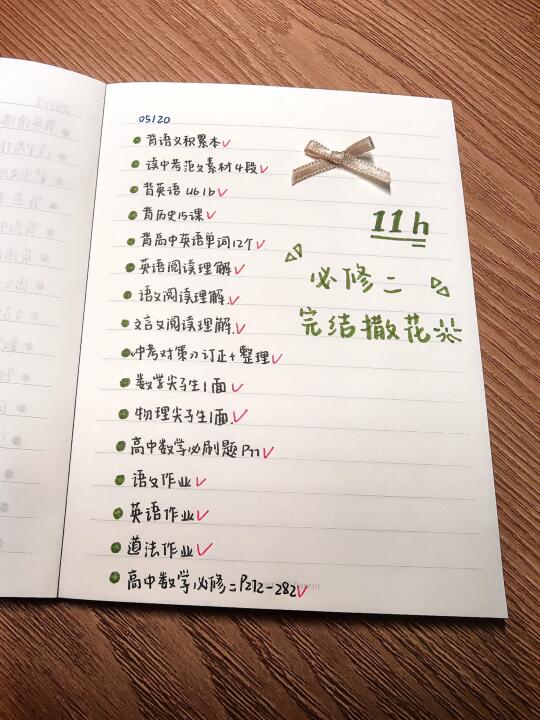 05/20
背语文积累本✓
读中考范文素材4段✓
背英语 U6 1b✓
背历史15课✓
背高中英语单词12个✓
英语阅读理解✓
语文阅读理解✓
文言文阅读理解✓
中考对策力订正+整理✓
数学尖子生1面✓
物理尖子生1面✓
高中数学必刷题P77✓
语文作业✓
英语作业✓
道法作业✓
高中数学必修二P272-282✓
11h
必修二
完结撒花